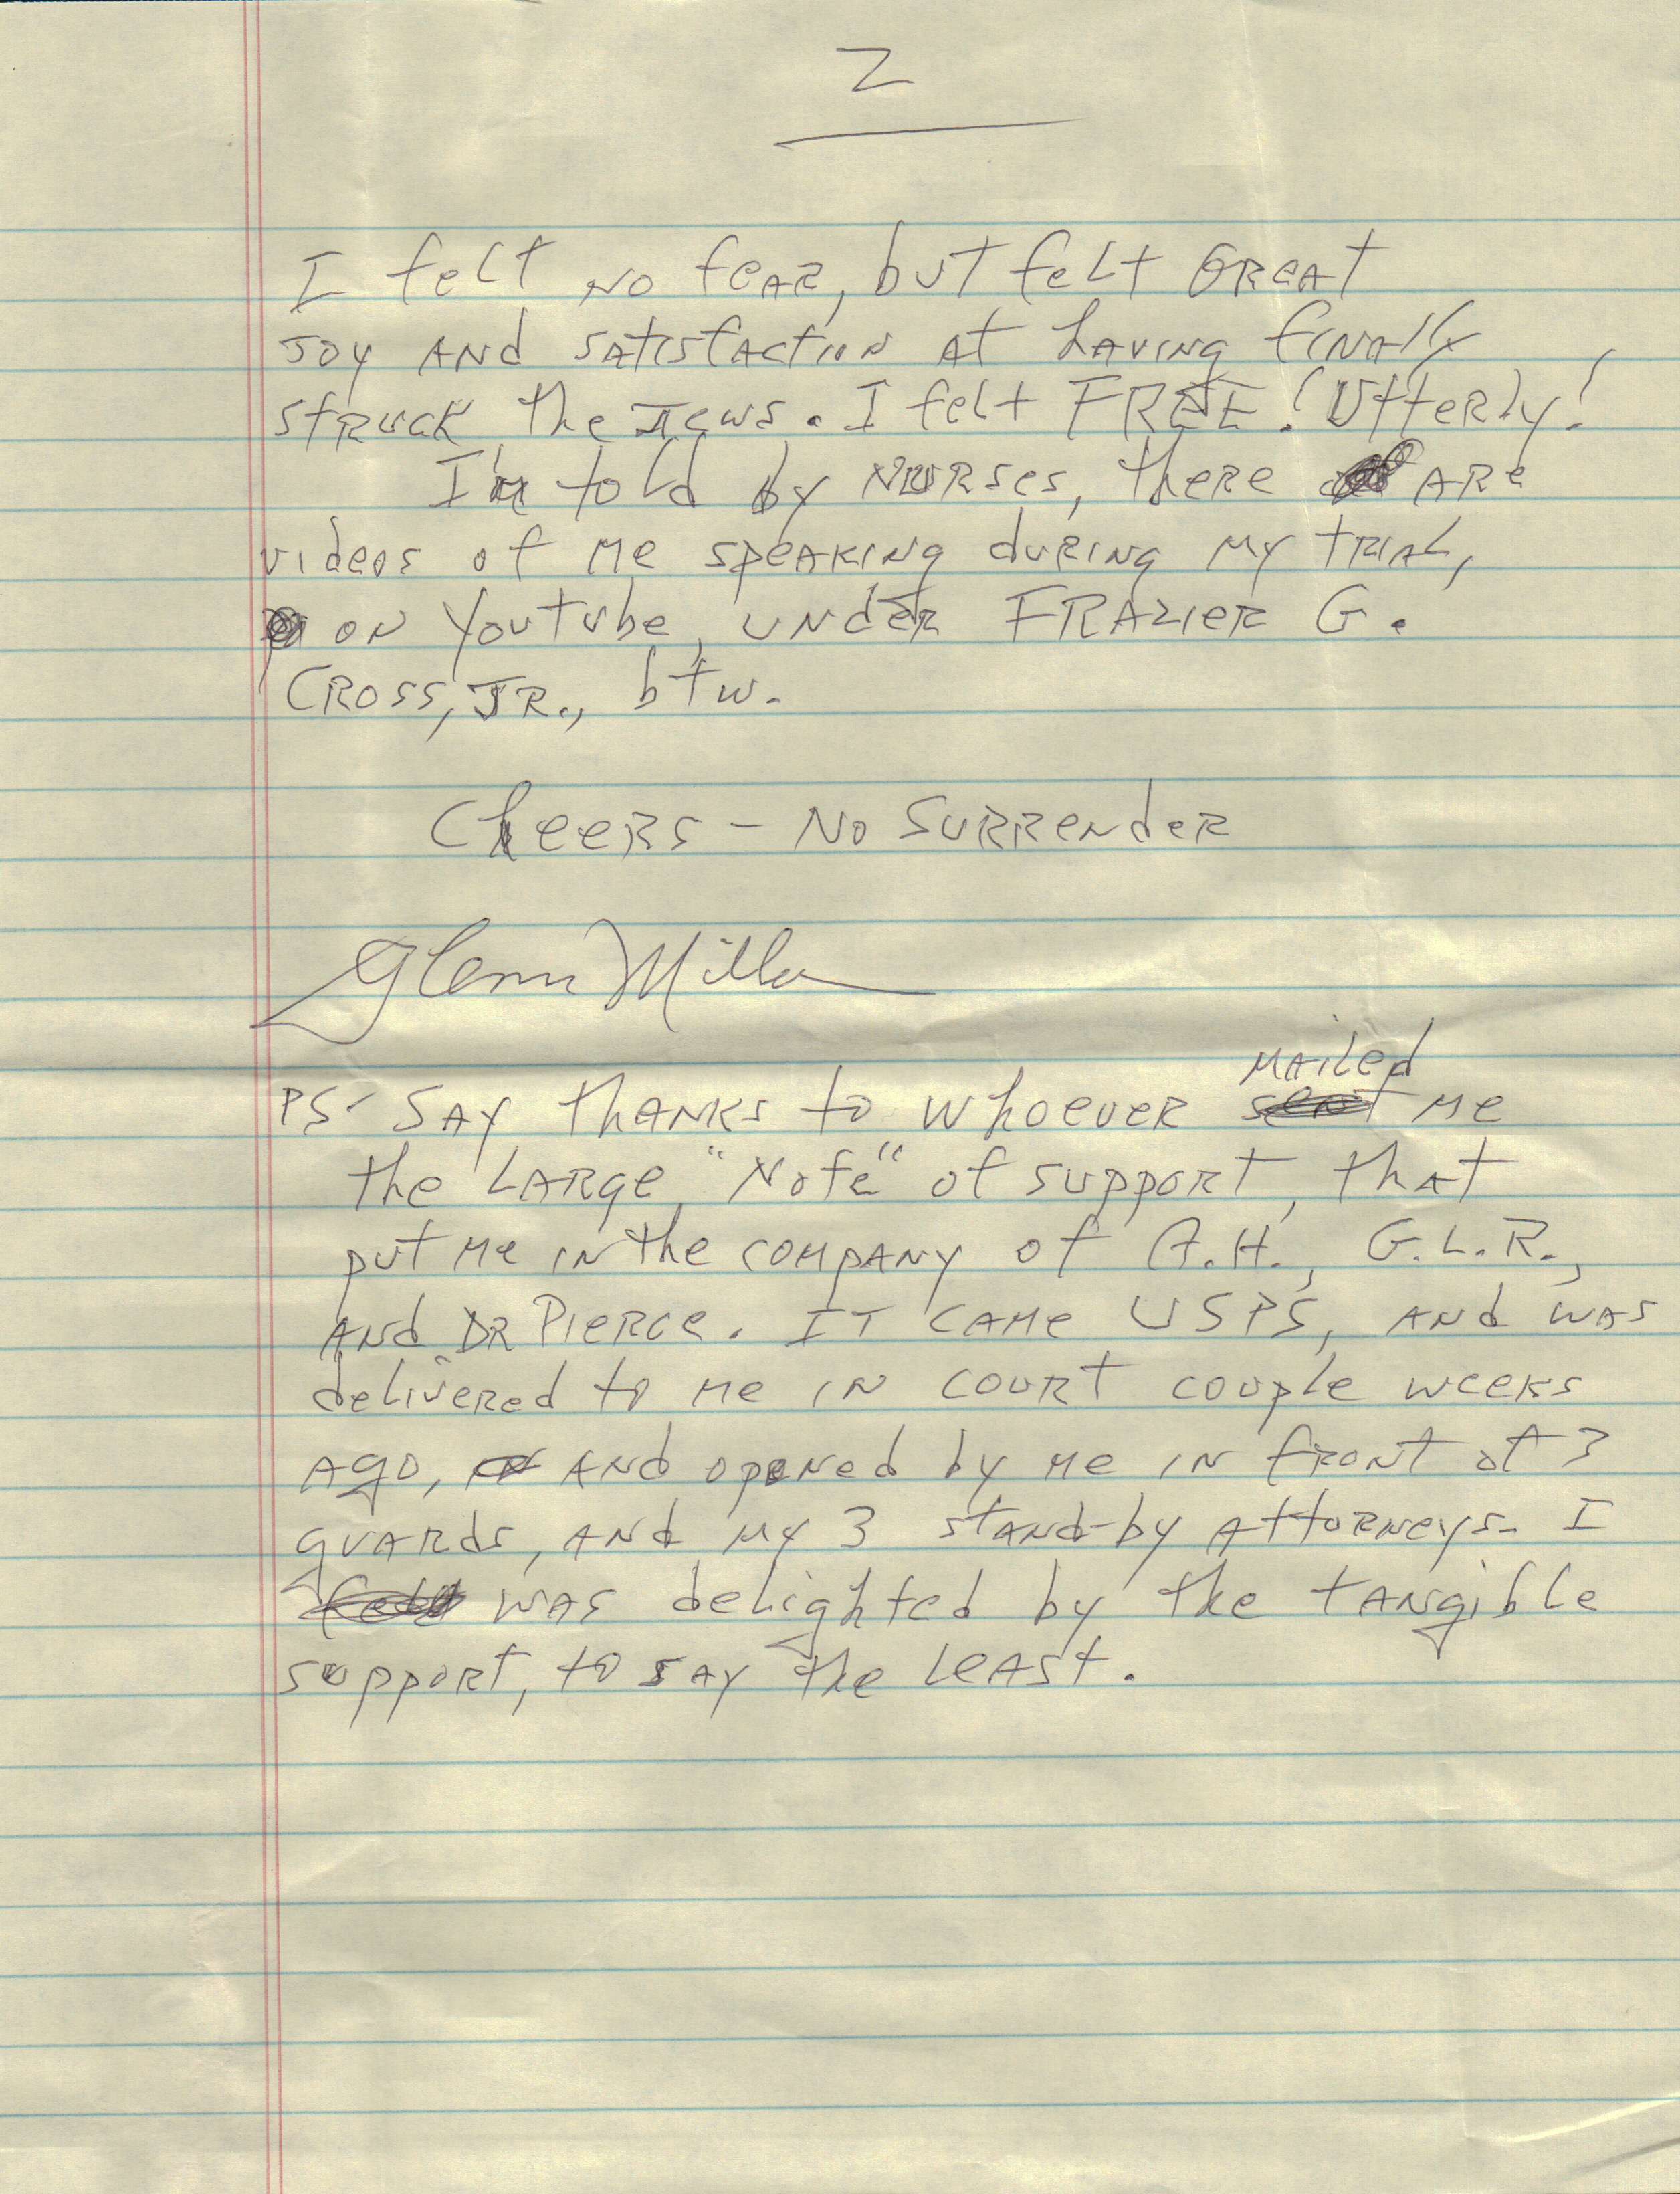 2
I felt no fear, but felt great
joy and satisfaction at having finally
struck the Jews. I felt FREE! Utterly!
I'm told by nurses, there are
videos of me speaking during my trial,
on Youtube, under FRAZIER G.
CROSS, JR., btw.
Cheers - No Surrender
Glenn Miller
PS- Say thanks to whoever mailed me
the large "Note" of support, that
put me in the company of A.H., G.L.R.,
and DR Pierce. It came USPS, and was
delivered to me in court couple weeks
ago, and opened by me in front of 3
guards, and my 3 stand-by attorneys. I
was delighted by the tangible
support, to say the least.